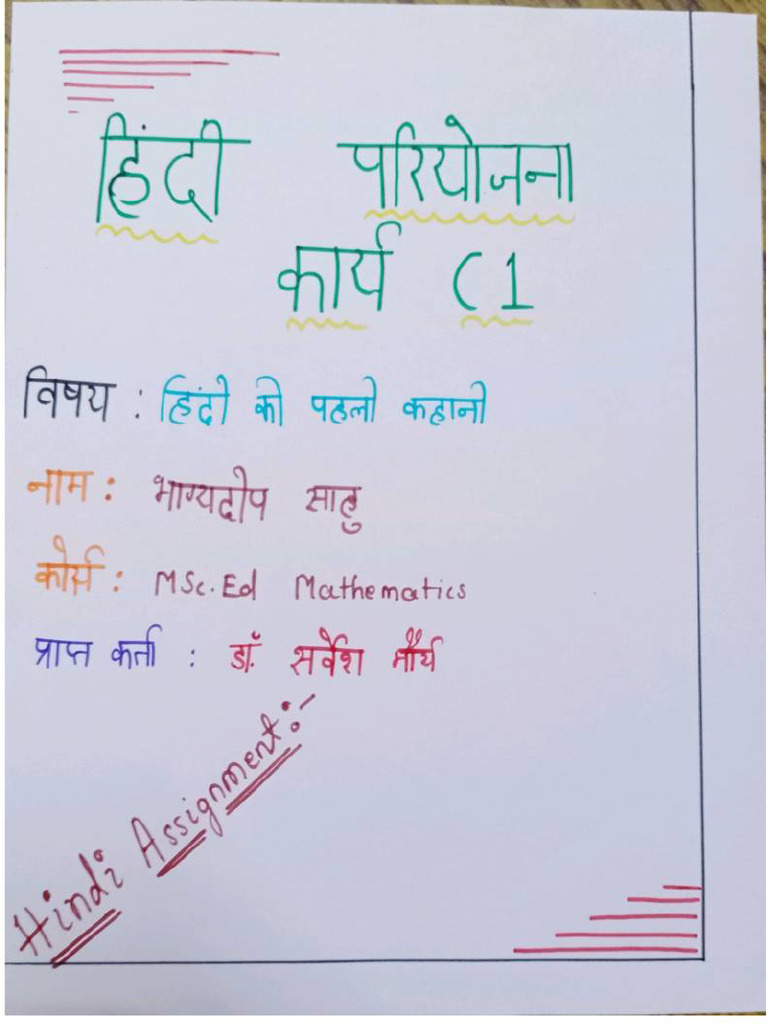 हिंदी परियोजना
कार्य C1
विषय : हिंदी की पहली कहानी
नाम : भाग्यदीप साहु
कोर्स : MSc.Ed Mathematics
प्राप्त कर्ता : डॉ. सर्वेश मौर्य
Hindi Assignment:-